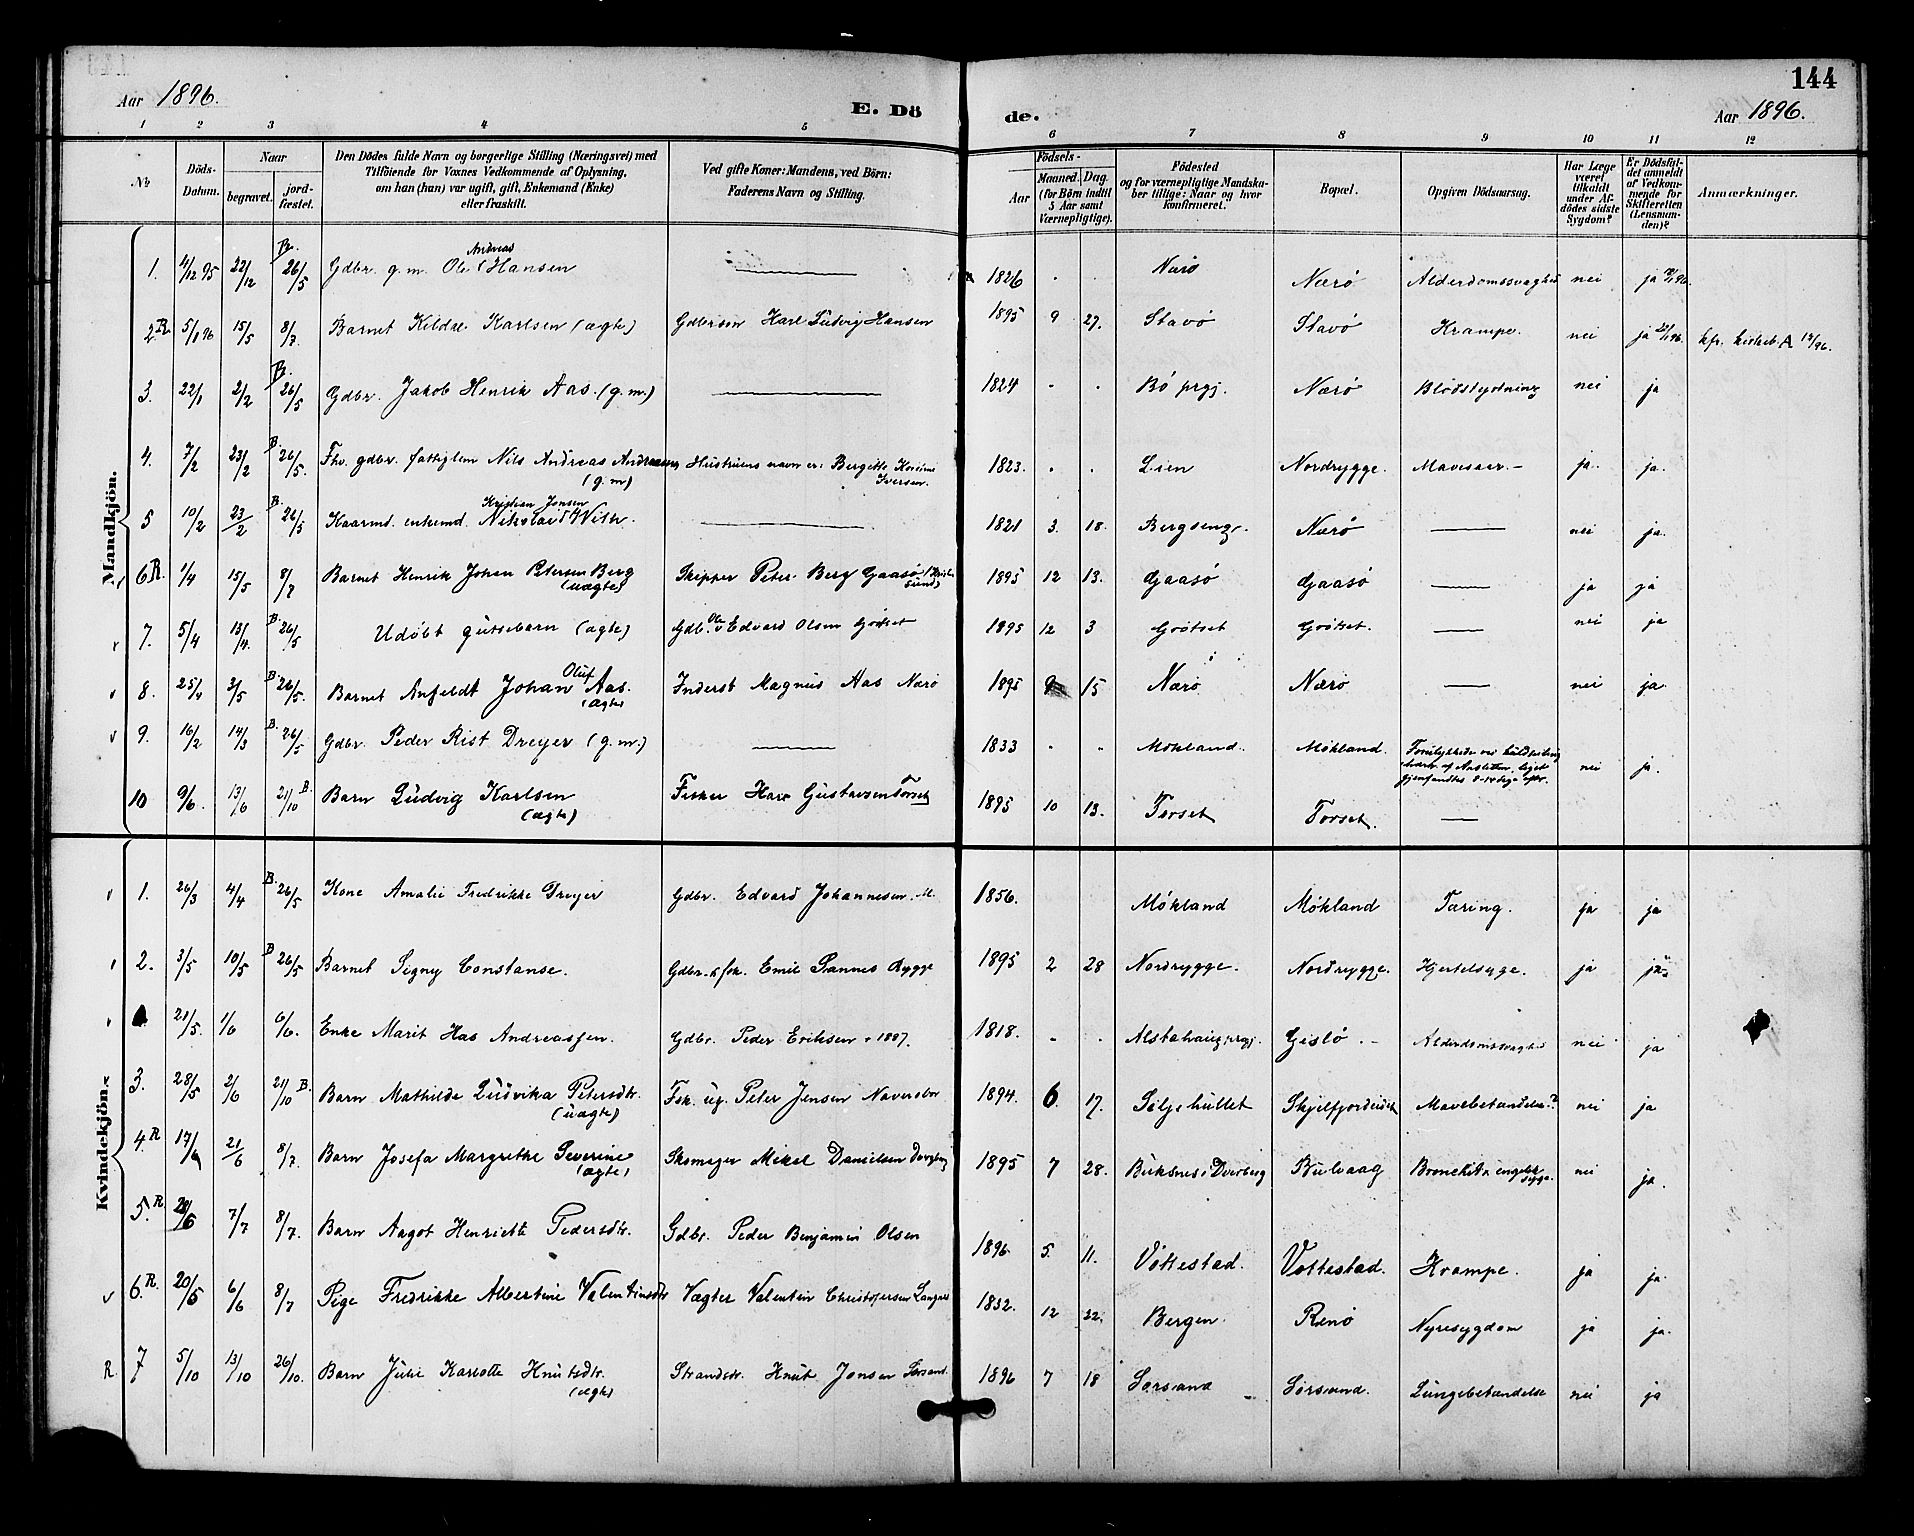 144
Aar 1896.
E. Dö
de.
Aar 1896.
1 2 3 4 5 6 7 8 9 10 11 12
№
Döds-
Datum.
Naar
begravet.
jord-
fæstet.
Den Dödes fulde Navn og borgerlige Stilling (Næringsvei) med
Tilföiende for Voxnes Vedkommende af Oplysning,
om han (hun) var ugift, gift, Enkemand (Enke)
eller fraskilt.
Ved gifte Koner: Mandens, ved Börn:
Faderens Navn og Stilling.
Födsels-
Aar
Maaned. Dag.
(for Börn indtil
5 Aar samt
Værnepligtige).
Födested
og for værnepligtige Mandska-
ber tillige: Naar og hvor
konfirmeret.
Bopæl.
Opgiven Dödsaarsag.
Har Læge
været
tilkaldt
under Af-
dödes sidste
Sygdom?
Er Dödsfal-
det anmeldt
af Vedkom-
mende for
Skifteretten
(Lensman-
den)?
Anmærkninger.
Mandkjön.
1. 4/12 95 22/12 B. 26/5 Gdbr. g.m. Ole Andreas Hansen 1826 Nærø Nærø Alderdomssvaghed nei ja
2. R 5/1 96 15/5 8/7 Barnet Kildal Karlsen (ægte) Gdbrsøn Karl Ludvig Hansen 1895 9 27. Stavø Stavø Krampe. nei ja kfr. kirkeb. A 12/96.
3. 22/1 2/2 B. 26/5 Gdbr. Jakob Henrik Aas. (g.m.) 1824 Bø prgj. Nærø Blodstyrtning nei ja
4. 7/2 23/2 B. 26/5. Fhv. gdbr. fattiglem Nils Andreas Andreassen (g.m) Hustruens navn er: Bergitte Iversen. 1823. Lien Nordrygge. Mavesaar. ja. ja.
5 10/2 23/2 B. 26/5 Kaarmd. enkemd. Nikolai Kristian Jonsen With. 1821 3. 18. Bergseng. Nærø nei ja.
6 R. 1/4 15/5 8/7 Barnet Henrik Johan Petersen Berg (uægte) Skipper Peter Berg Gaasø (Kristiansund) 1895 12 13. Gaasø Gaasø ja ja
7. 5/4 13/4. B. 26/5 Udøbt guttebarn (ægte) Gdb. Ole Edvard Olsen Grøtset 1895 12 3 Grøtset Grøtset. nei ja
8. 25/4 3/5 B. 26/5. Barnet Anfeldt Johan Oluf Aas. (ægte) Inderst Magnus Aas Nærø 1895 15 Nærø Nærø nei ja.
9. 16/2 14/3 B. 26/5 Gdbr. Peder Rist Dreyer (g.m.) 1833 Møkland. Møkland. nei ja.
10 9/6. 13/6 21/10 B. Barn Ludvig Karlsen (ægte) Fisker Gustavsen Forset 1895 10 13. Forset Forset.
Kvindekjön.
1. 26/3 4/4 B. 26/5 Kone Amalie Fredrikke Dreyer Gdbr. Edvard Johannesen M. 1856. Møkland Møkland Tæring. ja ja
2. 3/5 10/5 B 26/5 Barnet Signy Constanse. Gdbr. & fsk. Emil Rygge 1895 2 28 Nordrygge. Nordrygge. Hjertesyge. ja ja
21/5. 1/6 6/6. Enke Marit Has Andreassen. Gdbr. Peder Eriksen 1887. 1818. Alstahaug prgj. Gislø. Alderdomssvaghed nei ja
3. 28/5 2/6 21/10 B. Barn Mathilde Ludvika Petersdtr. (uægte) Fsk. ug. Peter Jensen 1894. 6. 17. Siljehullet Skjelfjordeidet Mavebetændelse? nei ja
4. R 17/6 21/6 8/7. Barn Josefa Margrethe Severine (ægte) Skomager Mikal Danielsen 1895 7 28. Buksnes i Dverberg Bulvaag engelsk syge. nei ja.
5. R 7/7 8/7. Barn Aagot Henriette Pedersdtr. Gdbr. Peder Benjamin Olsen 1896 5. 11. Vottestad. Vottestad. Krampe. ja ja.
6. R. 20/5 6/6 8/7 Pige Fredrikke Albertine Valentinsdtr Vægter Valentin Christofersen 1832. 12 22. Bergen. Renø Nyresygdom ja ja.
R 7 5/10 13/10 26/10. Barn Julie Karlotte Knutsdtr. (ægte) Strandsdr. Knut Jonsen Sørsand 1896 7 18 Sørsand Sørsand. Lungebetændelse nei ja